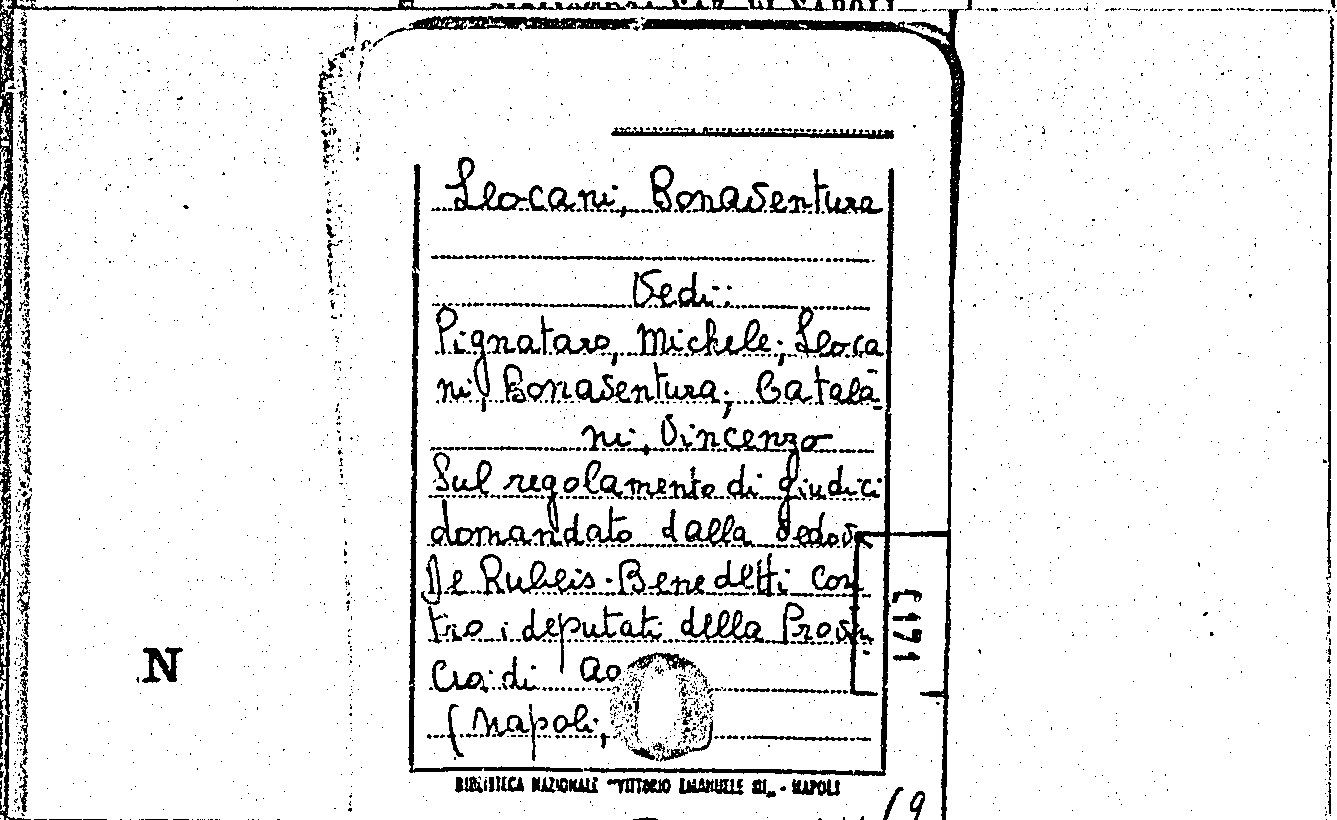 Leocani, Bonaventura
Vedi:
Pignataro, Michele; Leoca
ni, Bonaventura; Catala-
ni, Vincenzo
Sul regolamento di giudici
domandato dalla vedova
De Rubeis-Benedetti con
tro i deputati della Provin
cia di
(Napoli,
BIBLIOTECA NAZIONALE "VITTORIO EMANUELE III" - NAPOLI
N